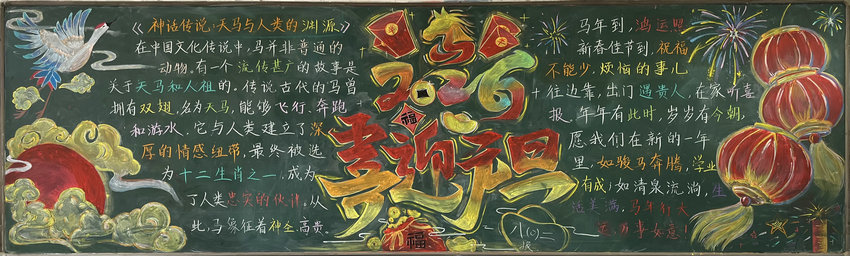 《神话传说:天马与人类的渊源》
在中国文化传说中,马并非普通的
动物。有一个流传甚广的故事是
关于天马和人祖的。传说古代的马曾
拥有双翅,名为天马,能够飞行、奔跑
和游水,它与人类建立了深
厚的情感纽带,最终被选
为十二生肖之一,成为
了人类忠实的伙伴。从
此,马象征着神圣、高贵。
2026
福
喜迎元旦
福
八(6)二
班
马年到,鸿运照
新春佳节到,祝福
不能少,烦恼的事儿
往边靠,出门遇贵人,在家听喜
报,年年有此时,岁岁有今朝,
愿我们在新的一年
里,如骏马奔腾,学业
有成;如清泉流淌,生
活美满,马年行大
运,万事如意!